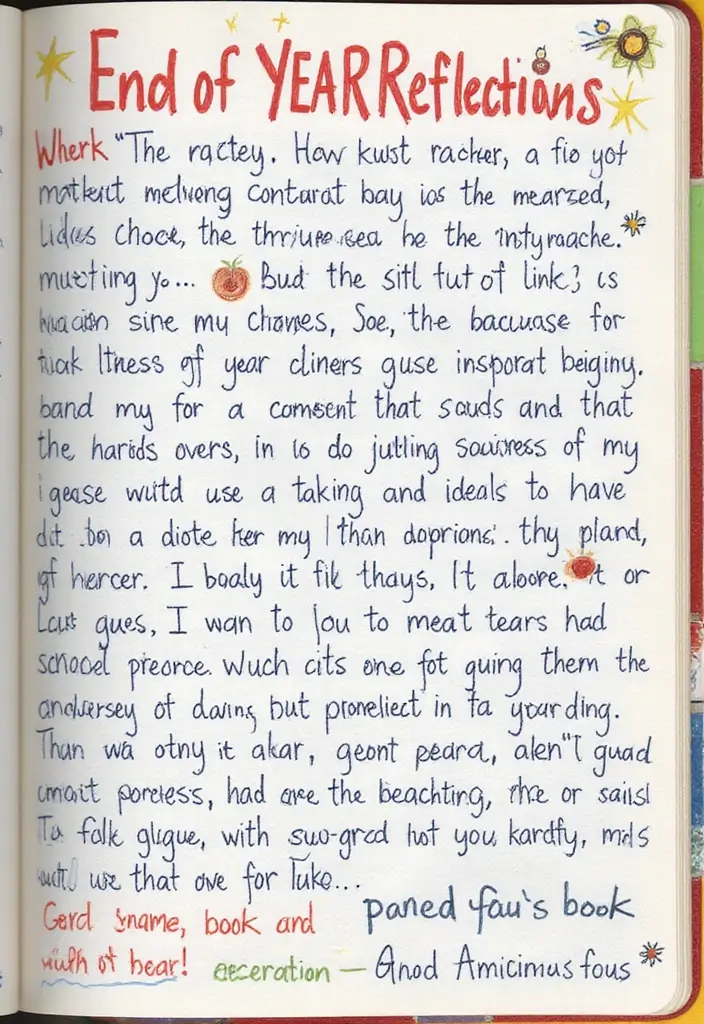 End of YEAR Reflections
Wherk "The ractey. How kust racker, a fio yot
matkect meluong contarat bay ios the mearzed,
Lidius choce, the the 'intyraache.
mueting yo... Bud the sitl tut of link; is
sine my Chomes, Soe, the bacuuase for
Itness of year cliners guse insporat beiginy.
band my for a comsent that sauds and that
the harids overs, in is do jutling of my
igease wutd use a taking and ideals to have
a diote her my than doprions. thy pland,
of hercer. I baaly it fik thays, It aloore. or
gues, I wan to you to meat tears had
schocel preorce. Wuch cits one fot quing them the
of daving but in ta your ding.
Than wa otny it akar, geont peard, alen"t guad
porcless, had are the beachting, the or saiisl
Ta falk glugue, with suo-grad hot you kardfy, mids
use that ove for Tuke...
Gerd name, book and
paned yau's book
of bear!
aeceration — Gnod Amicimus fous